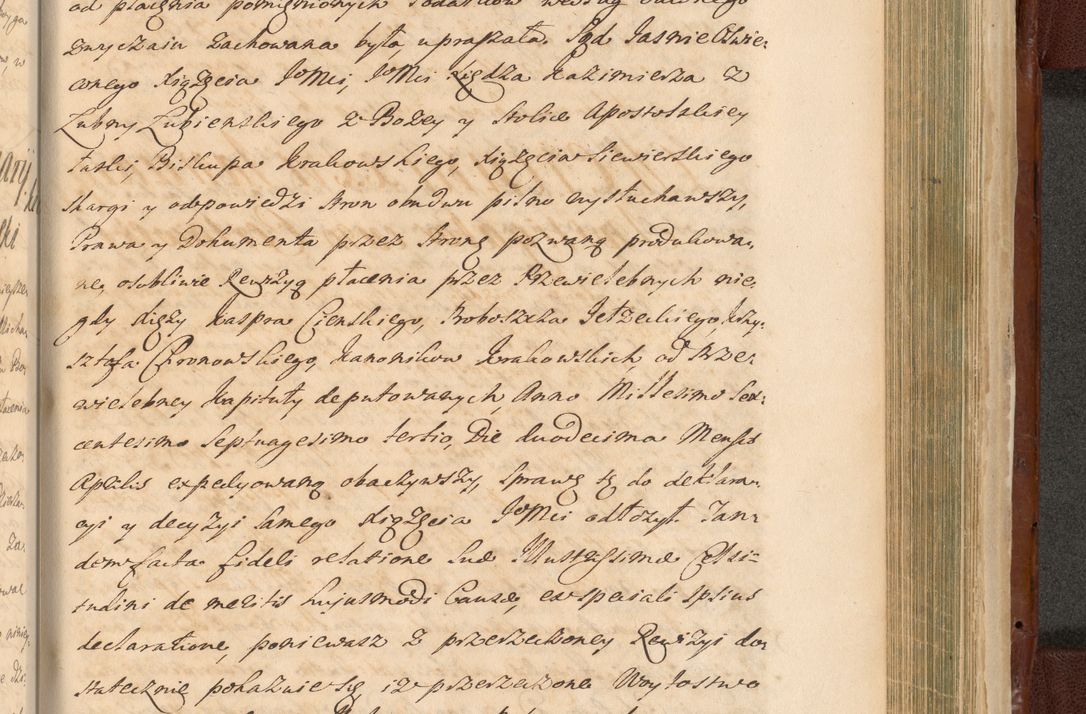 od płacenia pomienionych Podatkow według dawnego
zwyczaiu zachowana była, upraszała. Sąd Jasnie Oświe-
conego Xiążęcia JoMci, JoMci Xiędza Kazimierza z
Łubny Łubienskiego z Bożey y Stolice Apostolskiey
Łaski, Biskupa Krakowskiego, Xiążęcia Siewierskiego
skargi y odpowiedzi stron obudwu pilno wysłuchawszy,
Prawa y Dokumenta przez stronę pozwaną produkowa-
ne, osobliwie Rewizyą płacenia przez Przewielebnych nie-
gdy Xięży Kaspra Cienskiego, Proboszcza Krzy-
sztofa Chronowskiego, Kanonikow Krakowskich, od Prze-
wielebney Kapituły deputowanych, Anno Millesimo Sex-
centesimo Septuagesimo tertio, Die duodecima Mensis
Aprilis expedyowaną obaczywszy, sprawę tę do deklara-
cyi y decyzyi samego Xiążęcia JoMci odłożył. Tan-
dem facta fideli relatione Suæ Illustrissimæ Celsi-
tudini de meritis hujusmodi Causæ, ex speciali ipsius
declaratione, ponieważ z przerzeczoney Rewizyi do-
statecznie pokazuie się, iż przerzeczone Woytostwo